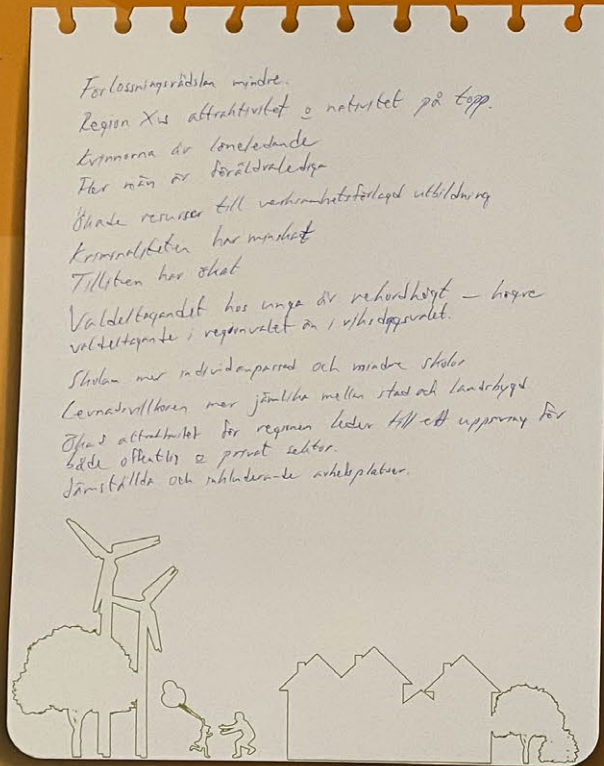 Förlossningsrädslan mindre.
Region Xs attraktivitet o nativitet på topp.
Kvinnorna är löneledande
Fler män är föräldralediga
Ökade resurser till verksamhetsförlagd utbildning
Kriminaliteten har minskat
Tilliten har ökat
Valdeltagandet hos unga är rekordhögt – högre
valdeltagande i regionvalet än i riksdagsvalet.
Skolan mer individanpassad och mindre skolor
Levnadsvillkoren mer jämlika mellan stad och landsbygd
Ökad attraktivitet för regionen leder till ett uppsving för
både offentlig o privat sektor.
Jämställda och inkluderande arbetsplatser.